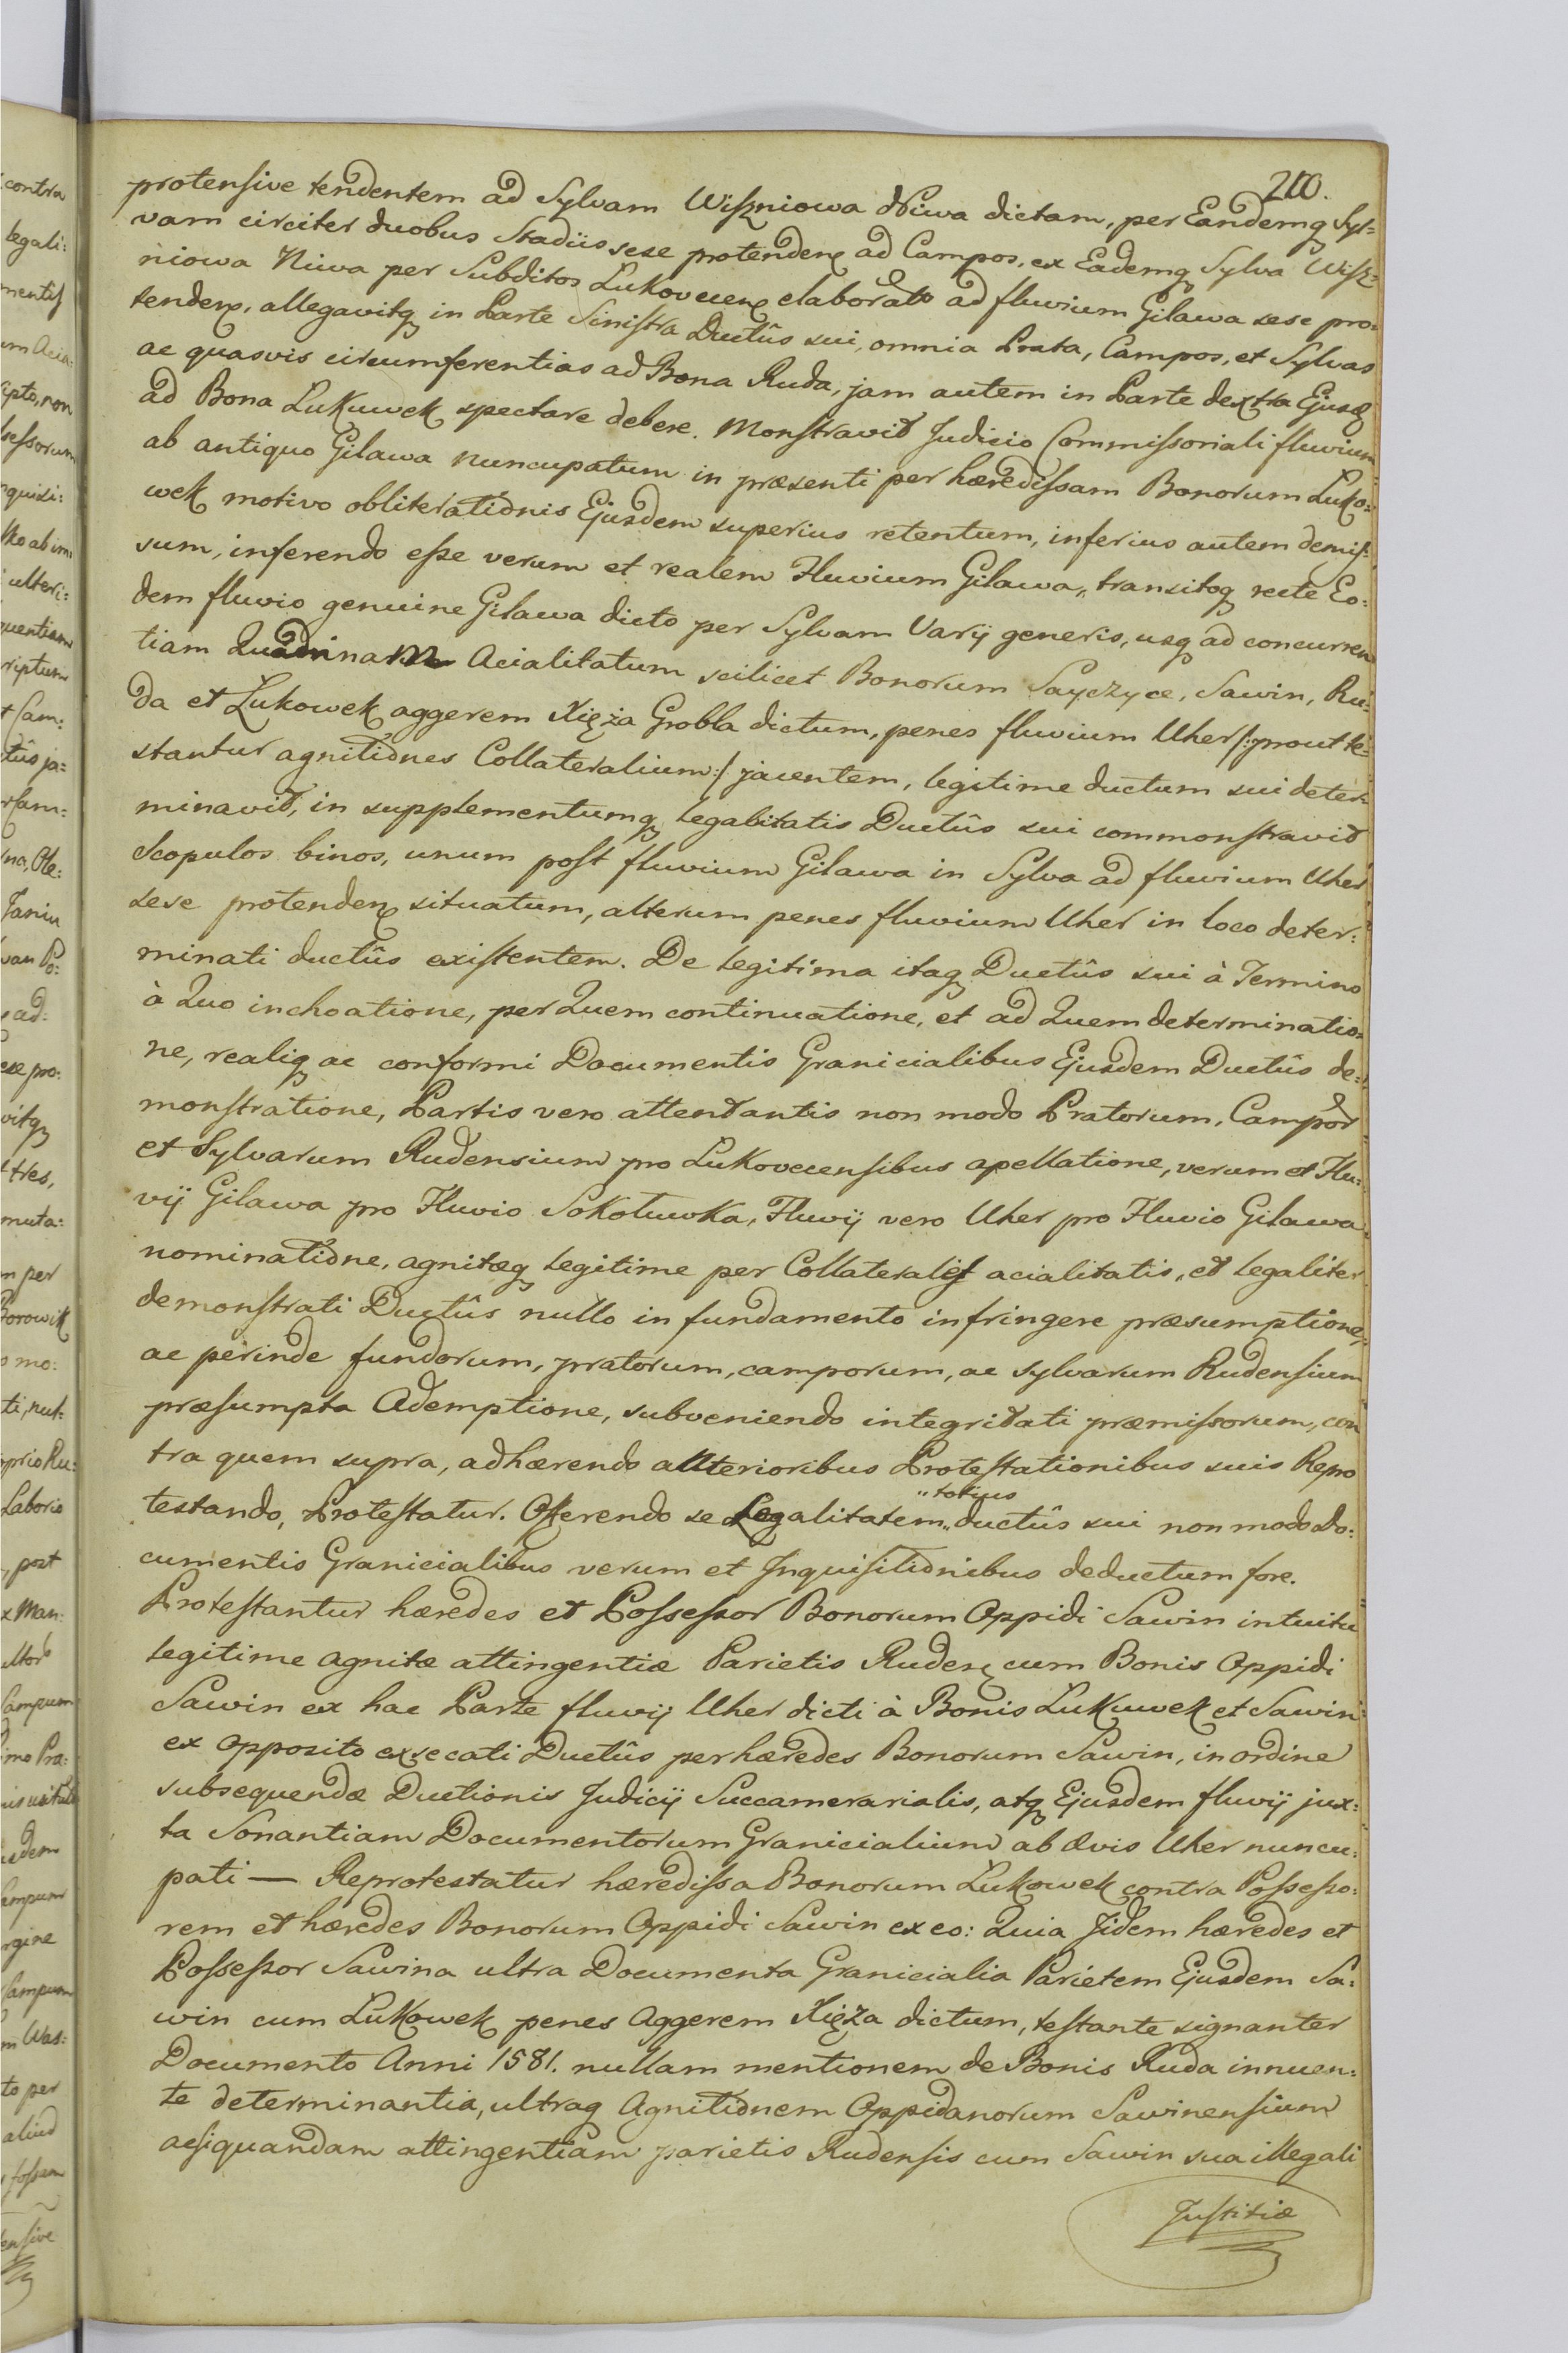 200.
protensive tendentem ad Sylvam Wiszniowa Niwa dictam, per Eandemq Syl=
vam circiter duobus Stadiis sese protenden ad Campos, ex Eademq Sylva Wisz=
niowa Niwa per Subditos Lukovecen elaborato ad fluvium Gilawa sese pro=
tenden, allegavitq in Parte Sinistra Ductûs sui, omnia Prata, Campos, et Sylvas
ac quasvis circumferentias ad Bona Ruda, jam autem in Parte dextra Ejusd
ad Bona Lukuwek spectare debere. Monstravit Judicio Commissoriali fluvium
ab antiquo Gilawa nuncupatum in præsenti per hæredissam Bonorum Luko=
wek motivo obliterationis Ejusdem superius retentum, inferius autem demis=
sum, inferendo esse verum et realem Fluvium Gilawa, transitoq recte Eo=
dem fluvio genuine Gilawa dicto per Sylvam Varij generis, usq ad concurren
tiam Quadrinam Acialitatum scilicet Bonorum Sayczyce, Sawin, Ru=
da et Lukowek aggerem Xięża Grobla dictum, penes fluvium Uher /: prout te=
stantur agnitiones Collateralium :/ jacentem, legitime ductum sui deter=
minavit, in supplementumq legalitatis Ductûs sui commonstravit
Scopulos binos, unum post fluvium Gilawa in Sylva ad fluvium Uher
sese protenden situatum, alterum penes fluvium Uher in loco deter=
minati ductûs existentem. De legitima itaq Ductûs sui à Termino
à Quo inchoatione, per Quem continuatione, et ad Quem determinatio=
ne, realiq ac conformi Documentis Granicialibus Ejusdem Ductûs de=
monstratione, Partis vero attentantis non modo Pratorum, Campor
et Sylvarum Rudensium pro Lukovecensibus apellatione, verum et Flu=
vij Gilawa pro Fluvio Sokołuwka, Fluvij vero Uher pro Fluvio Gilawa
nominatione, agnitæq legitime per Collaterales acialitatis, et legaliter
demonstrati Ductûs nullo in fundamento infringere præsumptione,
ac perinde fundorum, pratorum, camporum, ac sylvarum Rudensium
præsumpta Ademptione, subveniendo integritati præmissorum, con
tra quem supra, adhærendo anterioribus Protestationibus suis Repro
testando, Protestatur. Offerendo se Legalitatem "totius" ductûs sui non modo Do=
cumentis Granicialibus verum et Inquisitionibus deductum fore.
Protestantur hæredes et Possessor Bonorum Oppidi Sawin intuitu
legitime agnitæ attingentiæ Parietis Ruden cum Bonis Oppidi
Sawin ex hac Parte fluvij Uher dicti à Bonis Lukuwek et Sawin
ex opposito exsecati Ductûs per hæredes Bonorum Sawin, in ordine
subsequendæ Ductionis Judicij Succamerarialis, atq Ejusdem fluvij jux=
ta Sonantiam Documentorum Granicialium ab ævis Uher nuncu=
pati — Reprotestatur hæredissa Bonorum Lukowek contra Possesso=
rem et hæredes Bonorum Oppidi Sawin ex eo: Quia Jidem hæredes et
Possessor Sawina ultra Documenta Granicialia Parietem Ejusdem Sa=
win cum Lukowek penes Aggerem Xięża dictum, testante signanter
Documento Anni 1581. nullam mentionem de Bonis Ruda innuen=
te determinantia, ultraq Agnitionem Oppidanorum Sawinensium
acsiquandam attingentiam parietis Rudensis cum Sawin sua illegali
Justitiæ